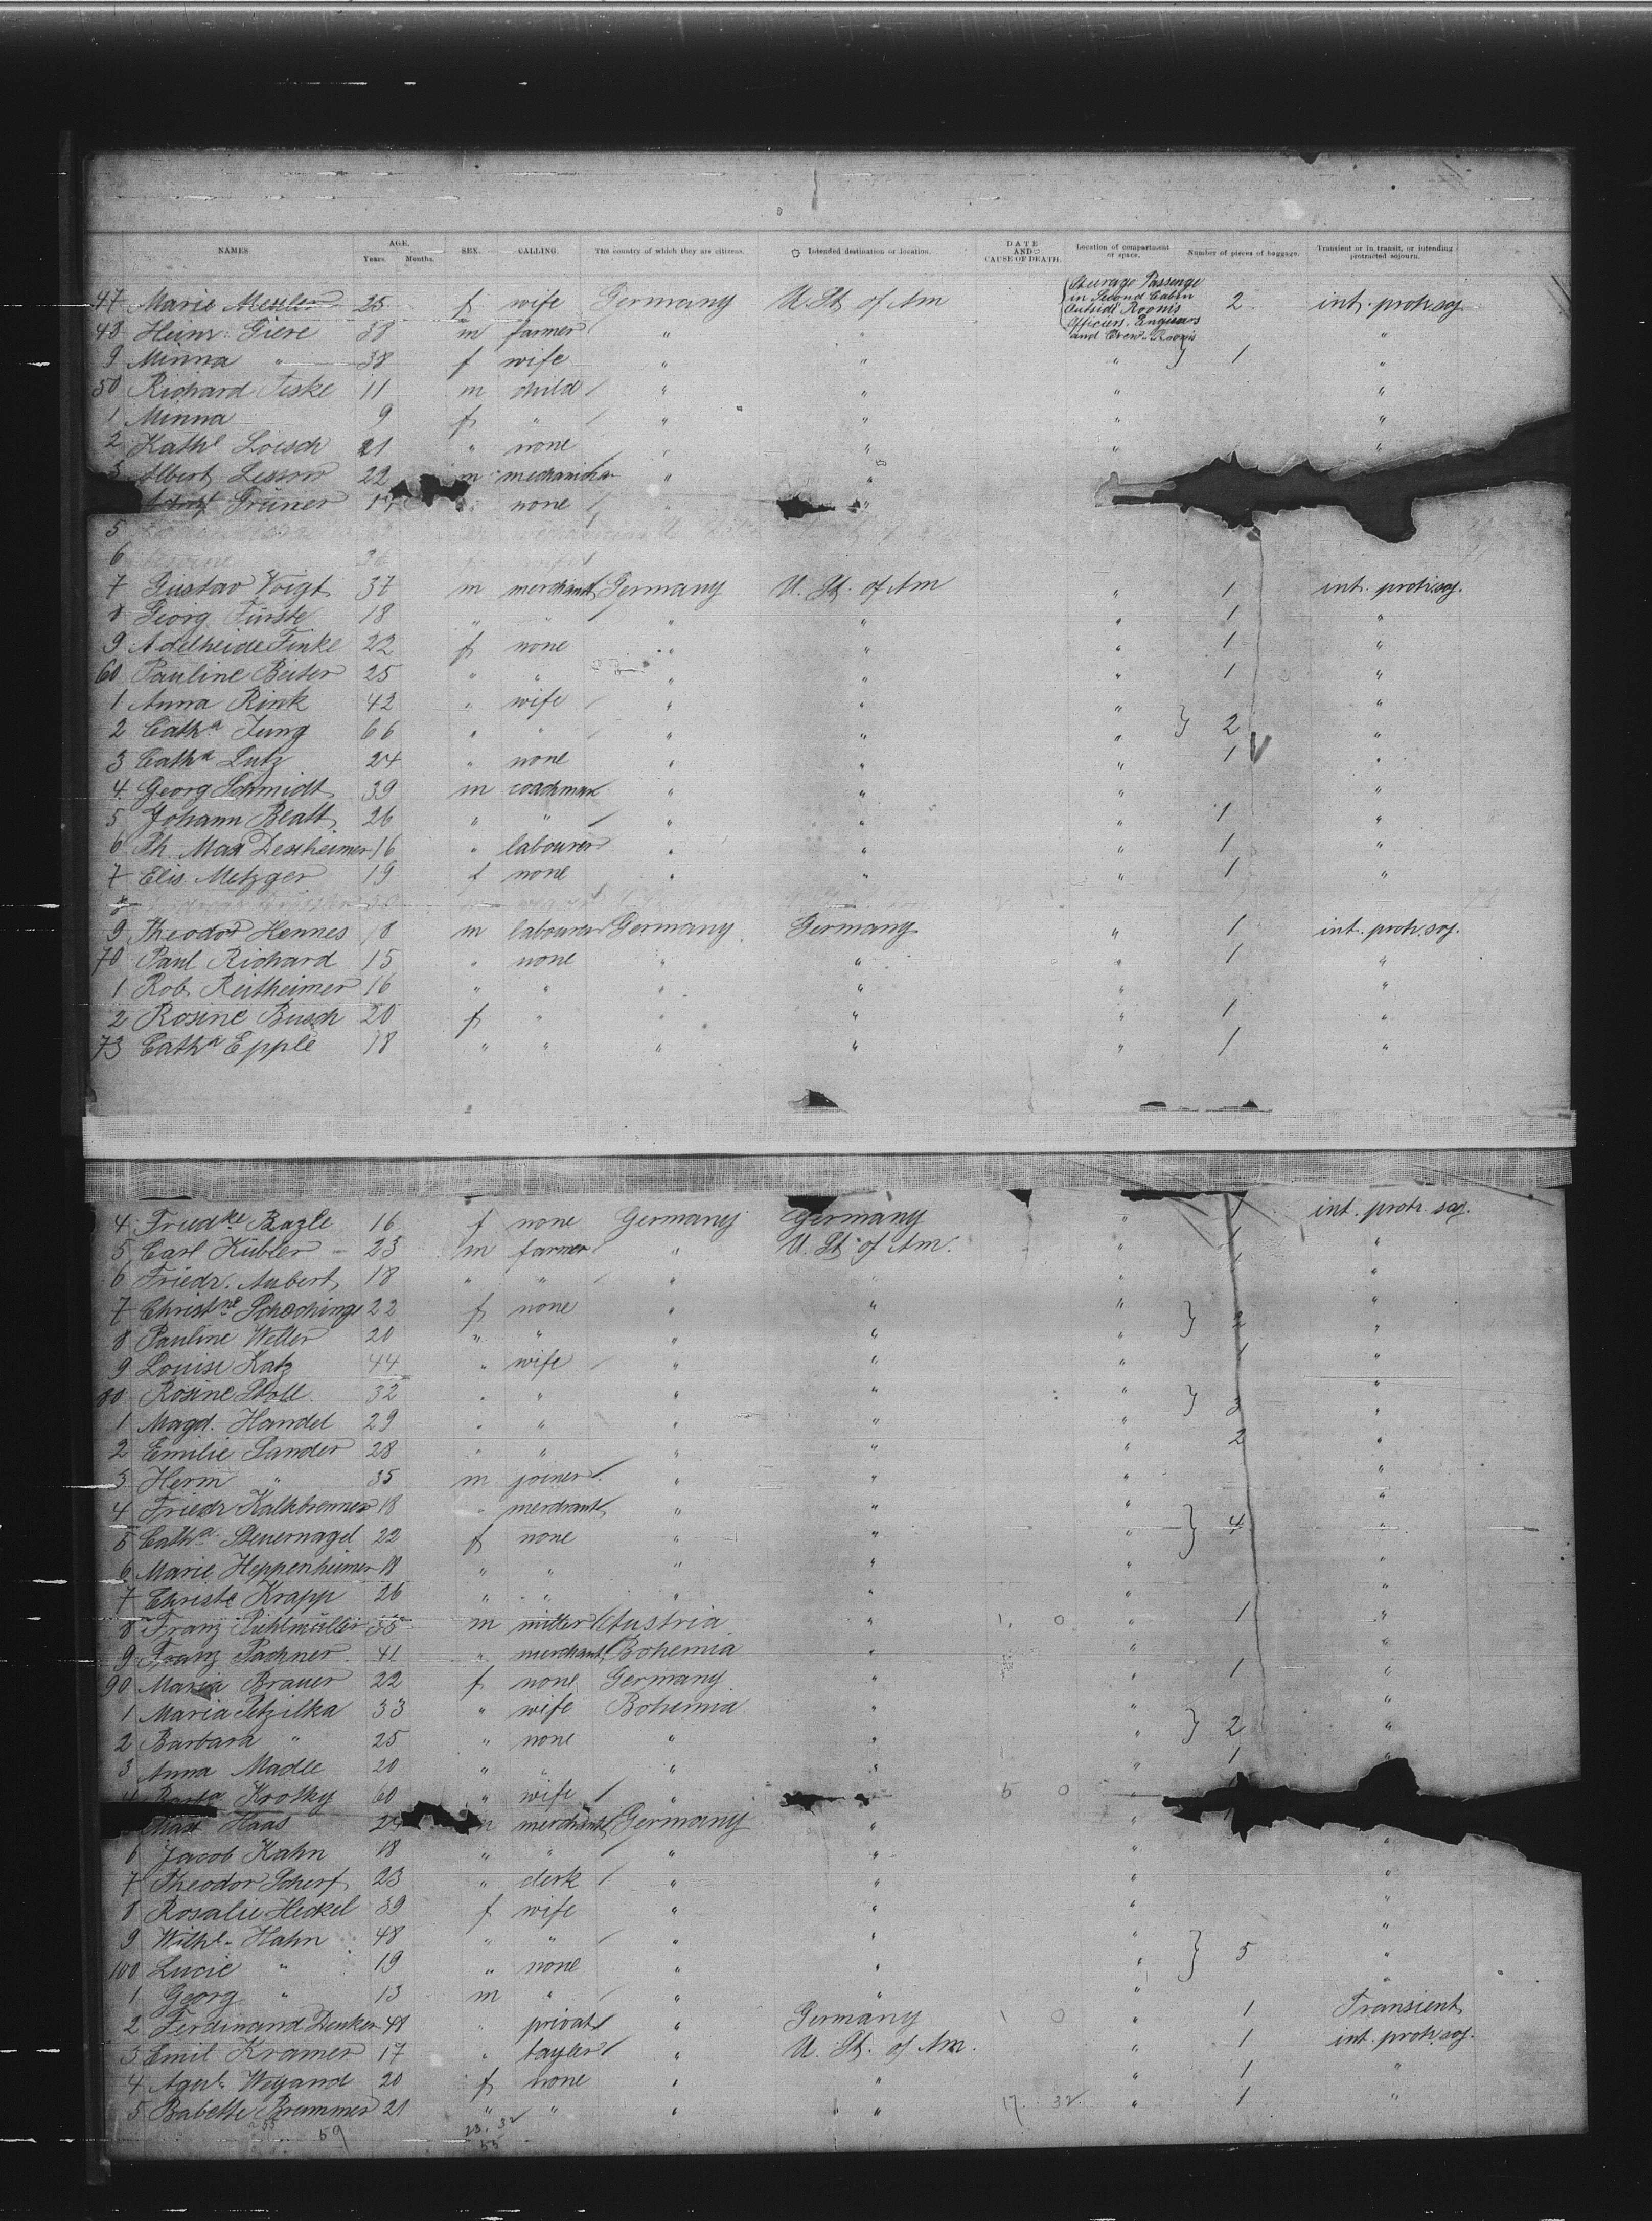 NAMES. AGE. Years. Months. SEX. CALLING. The country of which they are citizens. Intended destination or location. DATE AND CAUSE OF DEATH. Location of compartment or space. Number of pieces of baggage. Transient or in transit, or intending protracted sojourn.
47 Marie Mesler 25 f wife Germany U. St. of Am Steerage Passenge in Second Cabin Outside Rooms Officiers, Engineers and Crew-Rooms 2 int. protr. soj.
48 Heinr. Giere 38 m farmer " " "
9 Minna " 38 f wife " " " } 1 "
50 Richard Teske 11 m child " " " "
1 Minna 9 f " " " " "
2 Kathe Loesch 21 " none " " " "
3 Albert Lessow 22 m mechanician " "
Grüner none " "
5
6
7 Gustav Voigt 37 m merchant Germany U. St. of Am " 1 int. protr. soj.
8 Georg Fürste 18 " " " " " 1 "
9 Adelheide Finke 22 f none " " " 1 "
60 Pauline Beiter 25 " " " " " 1 "
1 Anna Rink 42 " wife " " " "
2 Catha Jung 66 " " " " " } 2 "
3 Catha Lutz 24 " none " " " 1 "
4 Georg Schmidt 39 m coachman " " " "
5 Johann Beatt 26 " " " " " 1 "
6 Ph. Max Dessheimer 16 " labourer " " " 1 "
7 Elis. Metzger 19 f none " " " 1 "
9 Theodor Hennes 18 m labourer Germany Germany " 1 int. protr. soj.
70 Paul Richard 15 " none " " " 1 "
1 Rob. Reitheimer 16 " " " " " "
2 Rosine Busch 20 f " " " " 1 "
73 Catha Epple 18 " " " " " 1 "
4 Friedke Bazle 16 f none Germany Germany " 1 int. protr. soj.
5 Carl Kübler 23 m farmer " U. St. of Am. " 1 "
6 Friedr. Aubert 18 " " " " " 1 "
7 Christne Schechinge 22 f none " " " "
8 Pauline Weller 20 " " " " " } 2 "
9 Louise Katz 44 " wife " " " 1 "
80 Rosine Stoll 32 " " " " " "
1 Magd. Handel 29 " " " " " } 3 "
2 Emilie Sander 28 " " " " " 2 "
3 Herm " 35 m joiner " " " "
4 Friedr Kalkbrenner 18 " merchant " " " "
5 Catha Steuernagel 22 f none " " " } 4 "
6 Marie Heppenheimer 18 " " " " " "
7 Christe Krapp 26 " " " " " "
8 Franz Pühlmüller 35 m miller Austria " 1, 0 " 1 "
9 Franz Pachner 41 " merchant Bohemia " " "
90 Maria Brauer 22 f none Germany " " 1 "
1 Maria Petzilka 33 " wife Bohemia " " "
2 Barbara " 25 " none " " " } 2 "
3 Anna Madle 20 " " " " " 1 "
4 Krotky 60 " wife " " 5 0 "
Max Haas merchant Germany " "
6 Jacob Kahn 18 " " " " " "
7 Theodor Scherf 23 " clerk " " " "
8 Rosalie Heckel 39 f wife " " " "
9 Wilhe Hahn 48 " " " " " "
100 Lucie " 19 " none " " " } 5 "
1 Georg " 13 m " " " "
2 Ferdinand Denker 48 " privat " Germany 1 0 " 1 Transient
3 Emil Kramer 17 " tayler " U. St. of Am. " 1 int. protr. soj.
4 Weyand 20 f none " " " 1 "
5 Babette Brummer 21 " " " " 17. 32 " 1 "
59 23. 32
55